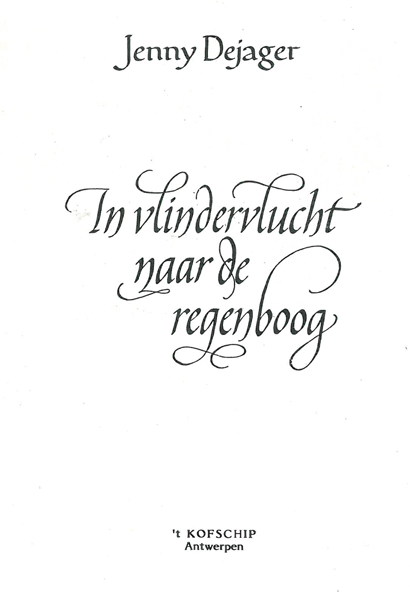 Jenny Dejager
In vlindervlucht
naar de
regenboog
't KOFSCHIP
Antwerpen